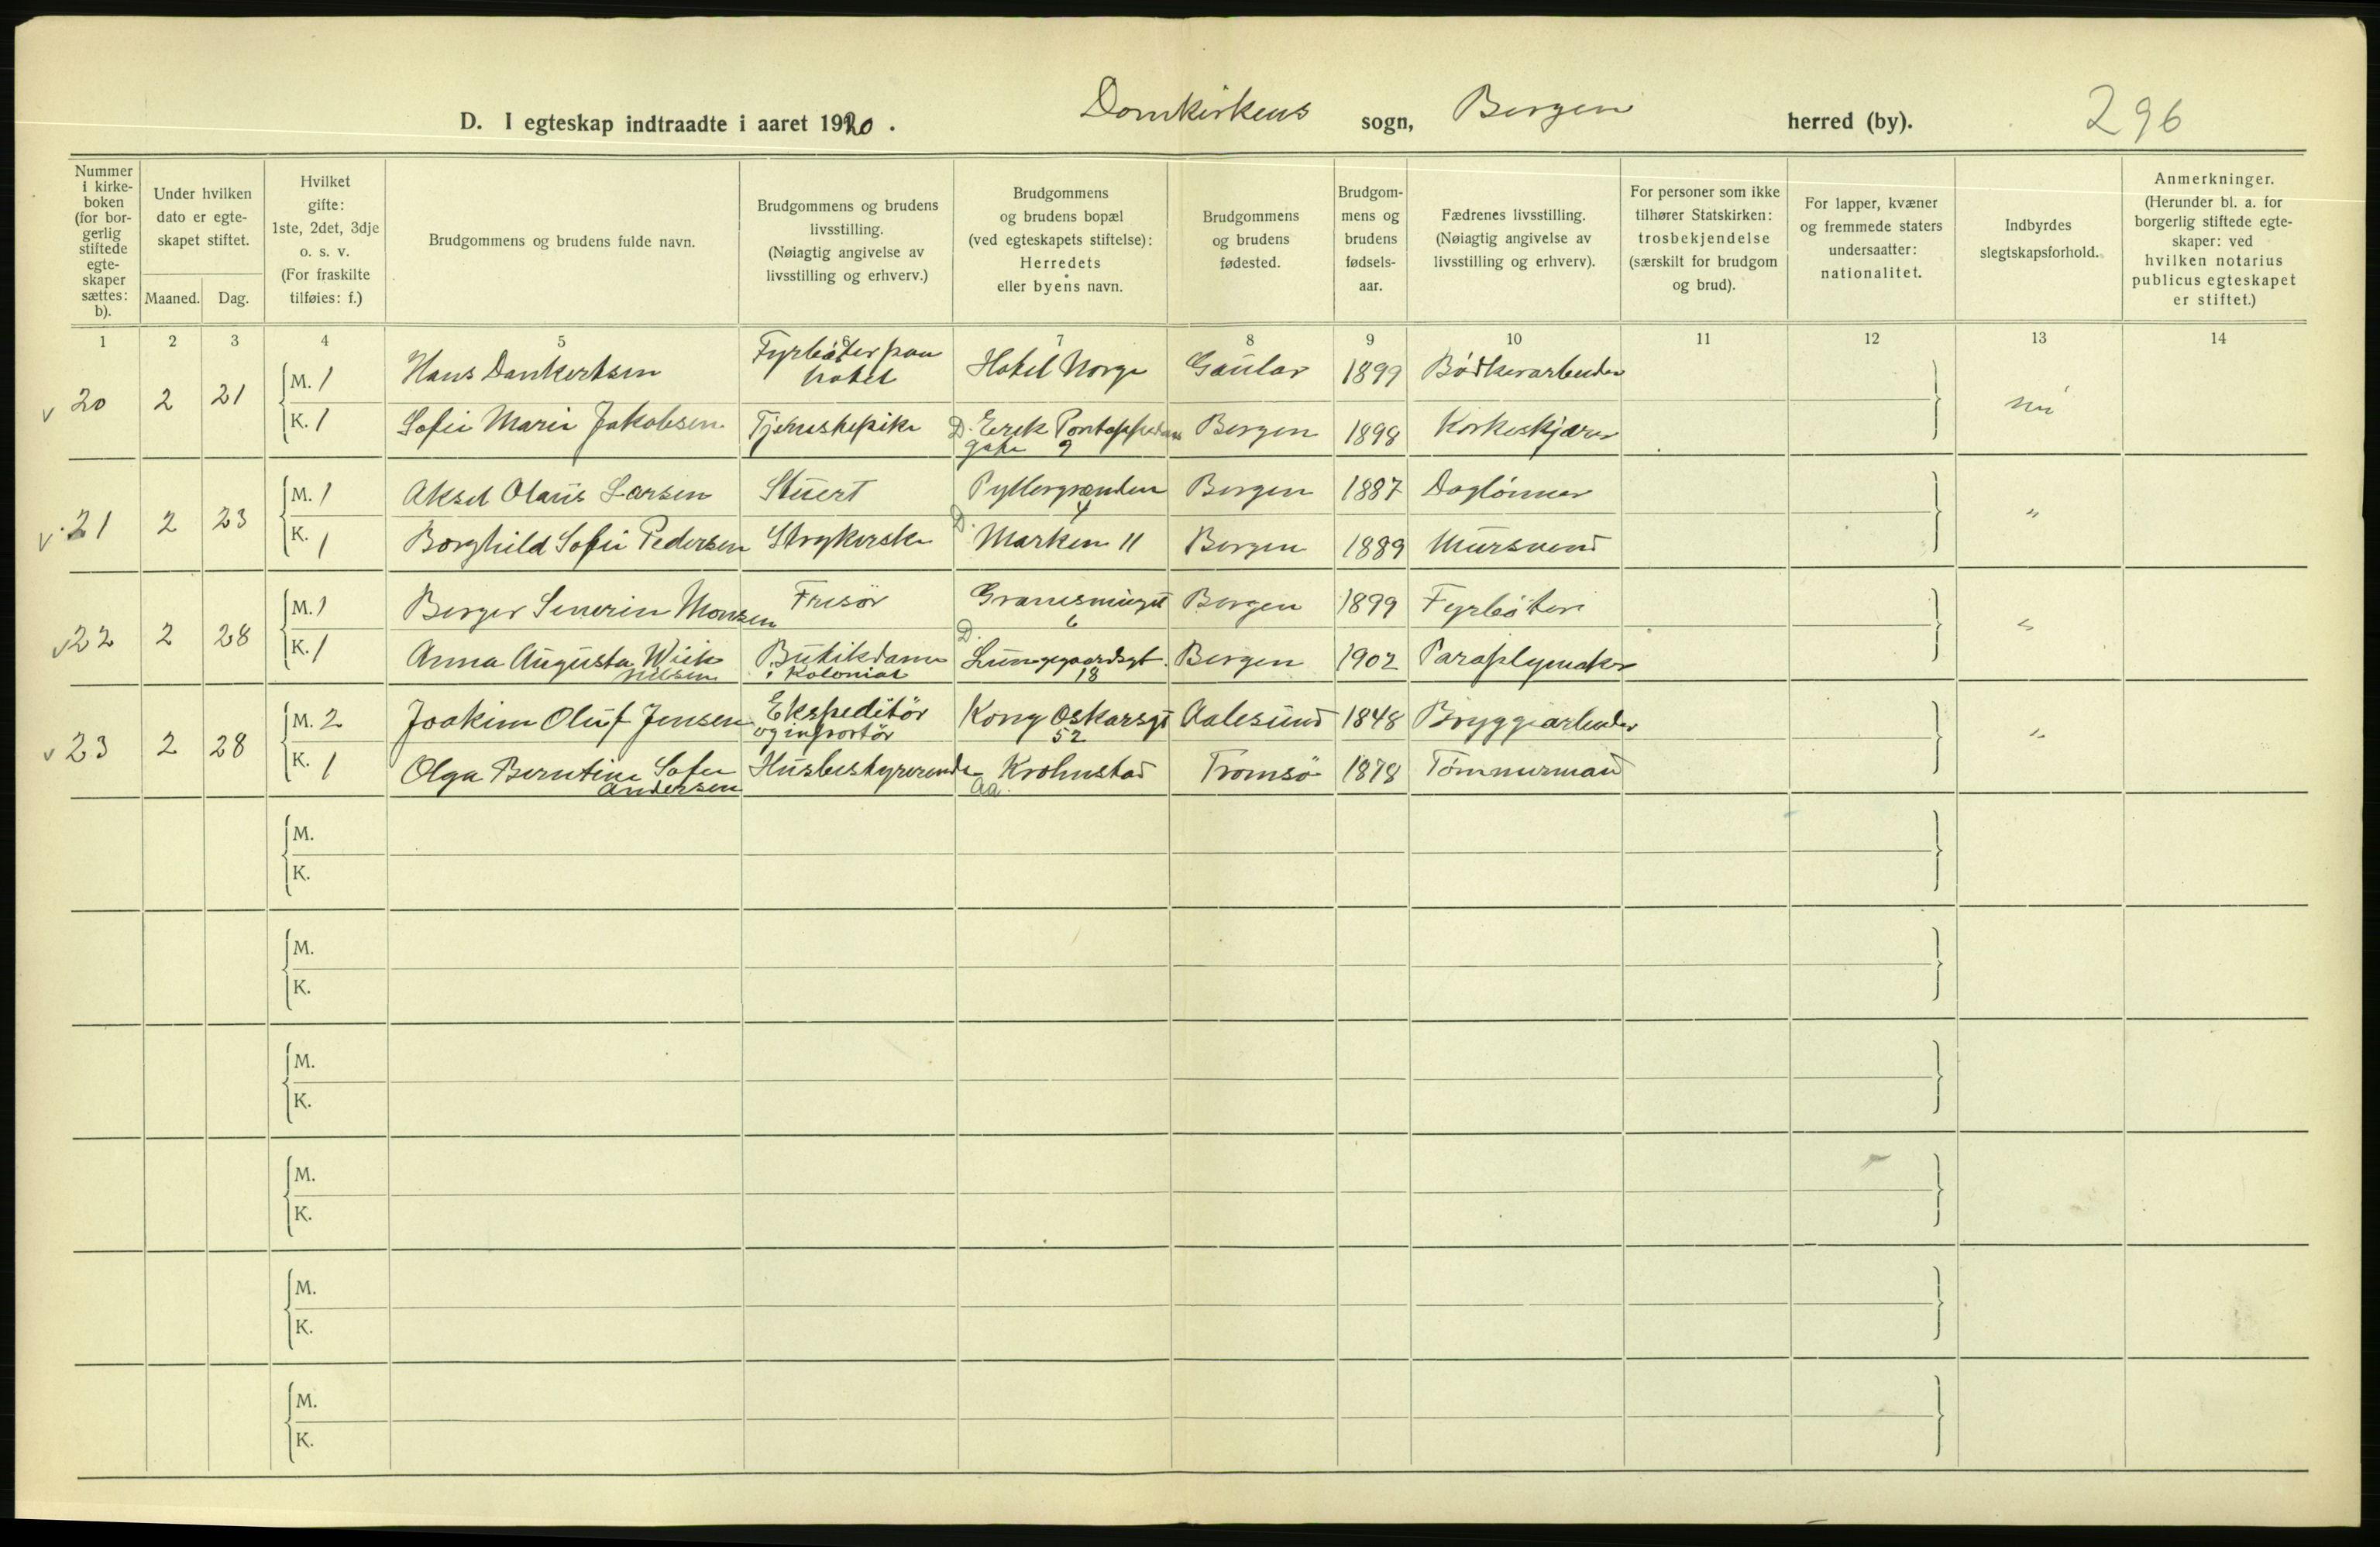 D. I egteskap indtraadte i aaret 1920. Domkirkens sogn, Bergen herred (by). 296
Nummer i kirke-boken (for bor-gerlig stiftede egte-skaper sættes: b).
Under hvilken dato er egte-skapet stiftet.
Maaned. Dag.
Hvilket gifte: 1ste, 2det, 3dje o. s. v. (For fraskilte tilføies: f.)
Brudgommens og brudens fulde navn.
Brudgommens og brudens livsstilling. (Nøiagtig angivelse av livsstilling og erhverv.)
Brudgommens og brudens bopæl (ved egteskapets stiftelse): Herredets eller byens navn.
Brudgommens og brudens fødested.
Brudgom-mens og brudens fødsels-aar.
Fædrenes livsstilling. (Nøiagtig angivelse av livsstilling og erhverv).
For personer som ikke tilhører Statskirken: trosbekjendelse (særskilt for brudgom og brud).
For lapper, kvæner og fremmede staters undersaatter: nationalitet.
Indbyrdes slegtskapsforhold.
Anmerkninger. (Herunder bl. a. for borgerlig stiftede egte-skaper: ved hvilken notarius publicus egteskapet er stiftet.)
1 2 3 4 5 6 7 8 9 10 11 12 13 14
v 20 2 21 M. 1 Hans Dankertsen Fyrbøter paa hotel Hotel Norge Gaular 1899 Bødkerarbeider
K. 1 Sofie Marie Jakobsen Tjenestepike D. Erik Pontoppidans gate 9 Bergen 1898 Korkeskjærer nei
v 21 2 23 M. 1 Aksel Olaus Larsen Stuert Pyttergrænden 4 Bergen 1887 Daglønner
K. 1 Borghild Sofie Pedersen Strykerske D. Marken 11 Bergen 1889 Mursvend "
v 22 2 28 M. 1 Berger Severin Monsen Frisör 6 Bergen 1899 Fyrbøter
K. 1 Anna Augusta Wiik Nilsen Butikdame i kolonial D. Lungegaardsgt. 18 Bergen 1902 Paraplymaker "
v 23 2 28 M. 2 Joakim Oluf Jensen Ekspeditör og Kong Oskarsgt 52 Aalesund 1848 Bryggearbeider
K. 1 Olga Berntine Sofie Andersen Husbestyrerinde Krohnstad Aa. Tromsö 1878 Tømmermand "
M.
K.
M.
K.
M.
K.
M.
K.
M.
K.
M.
K.